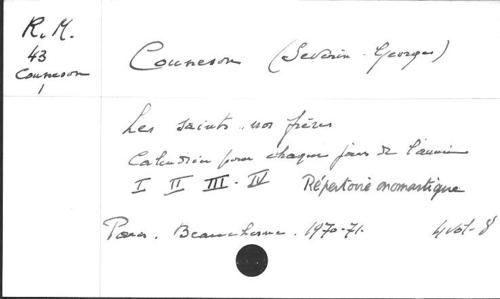 R.M.
43
Couneson
1
Couneson (Séverin-Georges)
Les saints nos frères
Calendrier pour chaque jour de l'année
I II III - IV Répertoire onomastique
Paris. Beauchesne. 1970-71. 4 vol. 8°